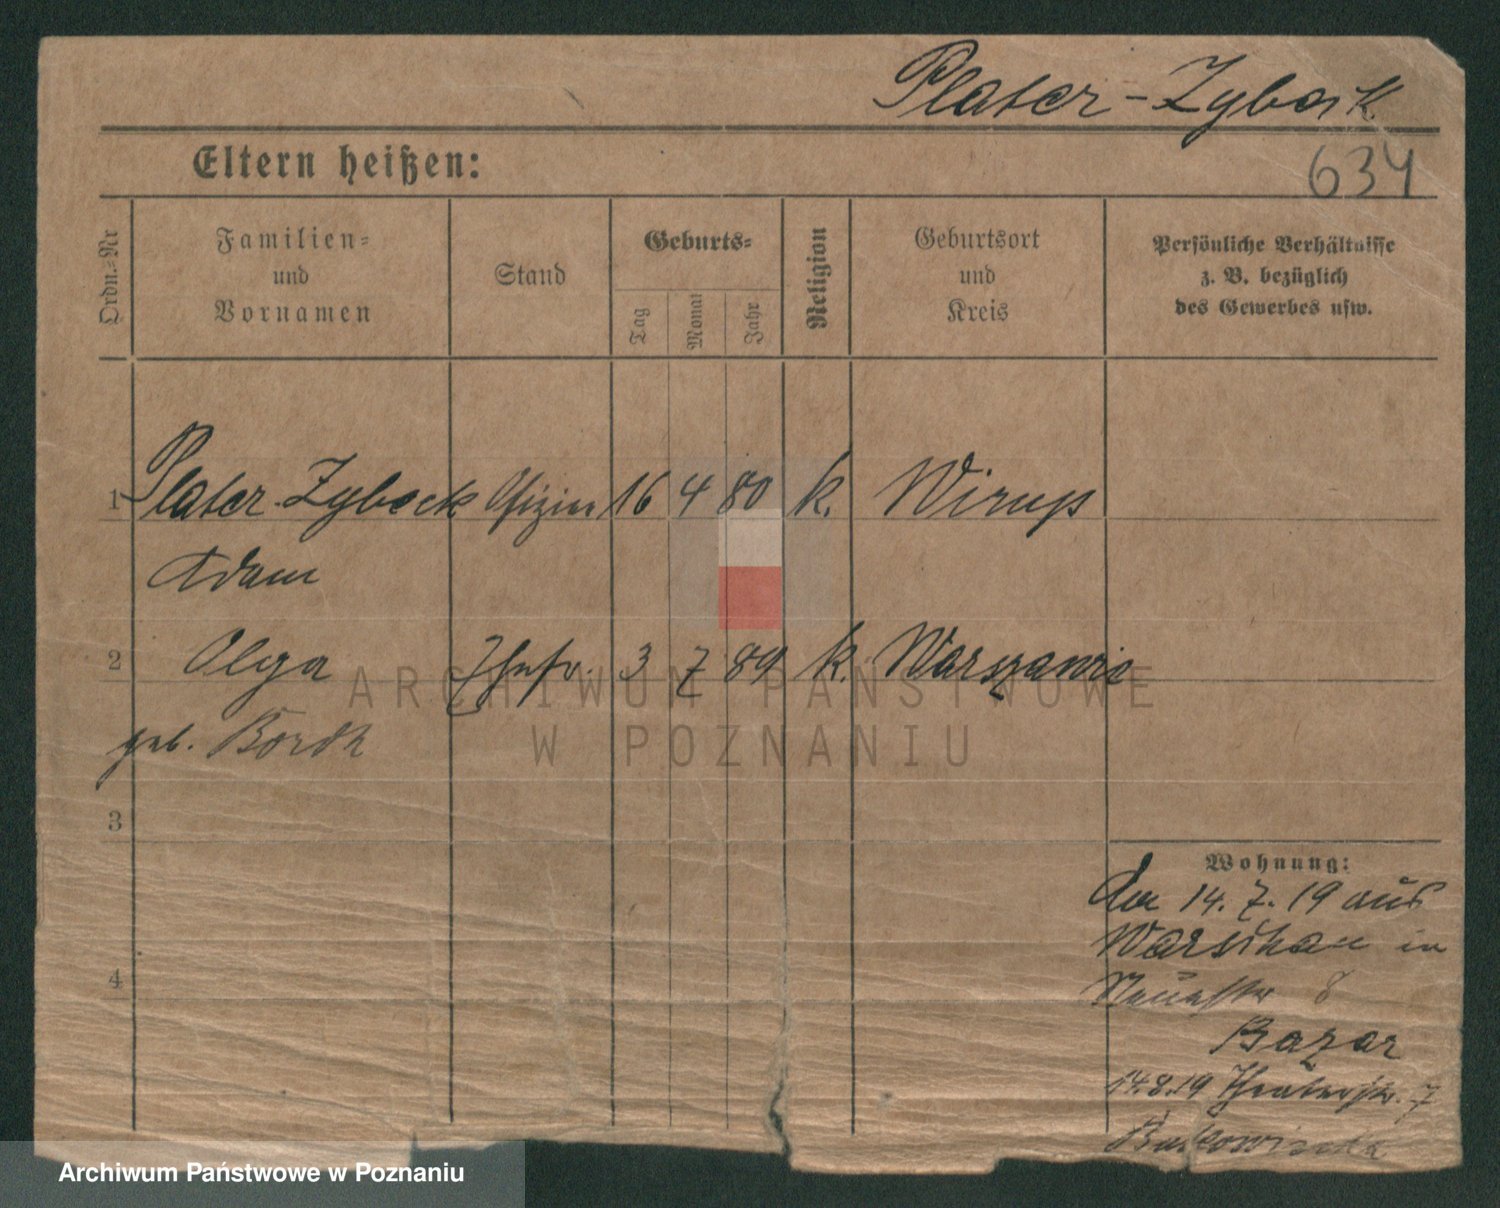 Plater-Zybeck
634
Eltern heißen:
Ordn.-Nr
Familien-
und
Vornamen
Stand
Geburts-
Tag
Monat
Jahr
Religion
Geburtsort
und
Kreis
Persönliche Verhältnisse
z. B. bezüglich
des Gewerbes usw.
1 Plater-Zybeck Ofizier 16 4 80 k.
Adam
2 Olga Ehefr. 3 7 89 k. Warszawie
geb.
3
4
Wohnung:
14.7.19 aus
Warschau in
8
Bazar
14.8.19 Theaterstr. 7
ARCHIWUM PAŃSTWOWE
W POZNANIU
Archiwum Państwowe w Poznaniu